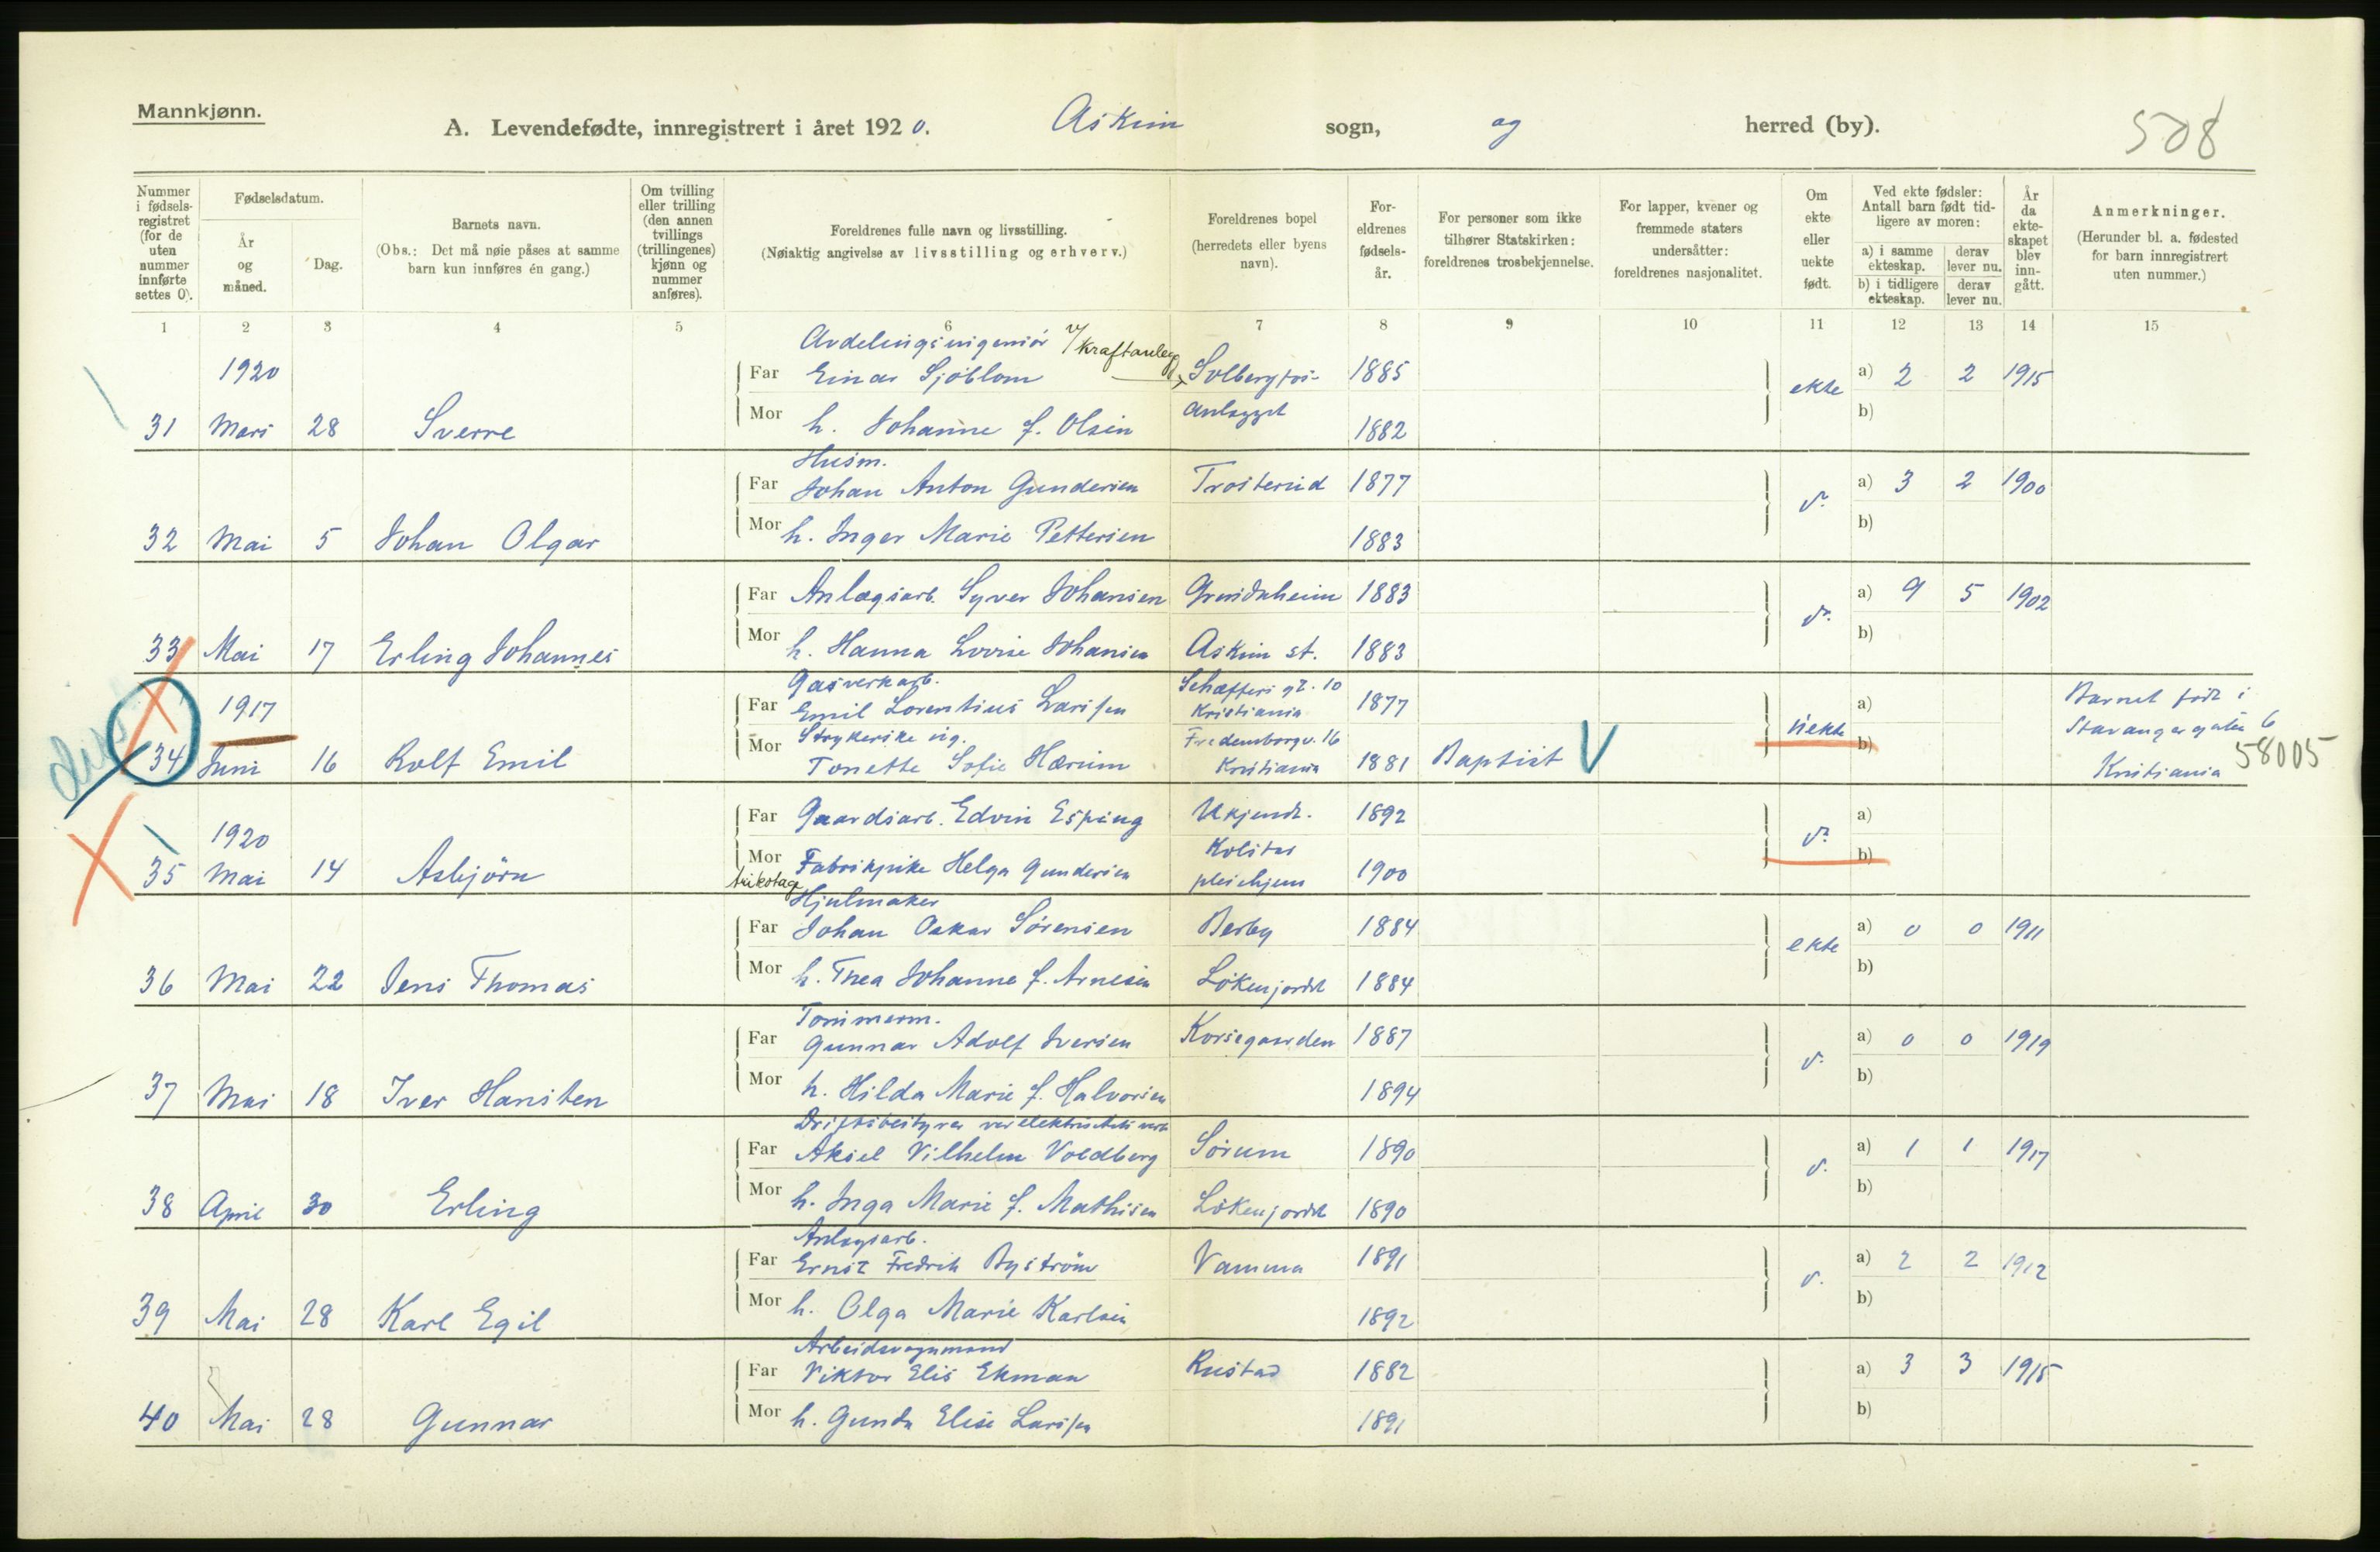 Mannkjønn.
A. Levendefødte, innregistrert i året 1920. Askim sogn, og herred (by). 508
Nummer i fødselsregistret (for de uten nummer innførte settes 0).
Fødselsdatum.
År og måned.
Dag.
Barnets navn.
(Obs.: Det må nøie påses at samme barn kun innføres én gang.)
Om tvilling eller trilling (den annen tvillings (trillingenes) kjønn og nummer anføres).
Foreldrenes fulle navn og livsstilling.
(Nøiaktig angivelse av livsstilling og erhverv.)
Foreldrenes bopel (herredets eller byens navn).
Foreldrenes fødselsår.
For personer som ikke tilhører Statskirken: foreldrenes trosbekjennelse.
For lapper, kvener og fremmede staters undersåtter: foreldrenes nasjonalitet.
Om ekte eller uekte født.
Ved ekte fødsler: Antall barn født tidligere av moren:
a) i samme ekteskap. derav lever nu.
b) i tidligere ekteskap. derav lever nu.
År da ekteskapet blev inngått.
Anmerkninger.
(Herunder bl. a. fødested for barn innregistrert uten nummer.)
1 2 3 4 5 6 7 8 9 10 11 12 13 14 15
Avdelingsingeniør v/ kraftanlegg
1920 Far Einar Sjöblom Solbergfos- 1885 ekte a) 2 2 1915
31 Mars 28 Sverre Mor h. Johanne f. Olsen anlegget 1882 b)
Husm.
Far Johan Anton Gundersen Trosterud 1877 d. a) 3 2 1900
32 Mai 5 Johan Olgar Mor h. Inger Marie Pettersen 1883 b)
Far Anlægsarb. Syver Johansen Grindaheim 1883 d. a) 9 5 1902
33 Mai 17 Erling Johannes Mor h. Hanna Lovise Johansen Askim st. 1883 b)
Gasverkarb. Schæffers gt. 10
1917 Far Emil Lorentius Larssen Kristiania 1877 uekte a) Barnet født i
Strykerske ug. Fredensborgv. 16 Stavangergaten 6
34 Juni 16 Rolf Emil Mor Tonette Sofie Hærum Kristiania 1881 Baptist V b) Kristiania 58005
1920 Far Gaardsarb. Edvin Esping Ukjendt. 1892 d. a)
35 Mai 14 Asbjörn Mor Fabrikpike Helga Gundersen Kolstad pleiehjem 1900 b)
trikotage
Hjulmaker
Far Johan Oskar Sørensen Berby 1884 ekte a) 0 0 1911
36 Mai 22 Jens Thomas Mor h. Thea Johanne f. Arnesen Løkenjordet 1884 b)
Tømmerm.
Far Gunnar Adolf Iversen Korsegaarden 1887 d. a) 0 0 1919
37 Mai 18 Iver Hansten Mor h. Hilda Marie f. Halvorsen 1894 b)
Driftsbestyrer ved elektricitetsverk
Far Aksel Vilhelm Voldberg Sørum 1890 d. a) 1 1 1917
38 April 30 Erling Mor h. Inga Marie f. Mathisen Løkenjordet 1890 b)
Anlægsarb.
Far Ernst Fredrik Byström Vamma 1891 d. a) 2 2 1912
39 Mai 28 Karl Egil Mor h. Olga Marie Karlsen 1892 b)
Arbeidsvognmand
Far Viktor Elis Ekman Rustad 1882 a) 3 3 1915
40 Mai 28 Gunnar Mor h. Gunda Elise Larssen 1891 b)